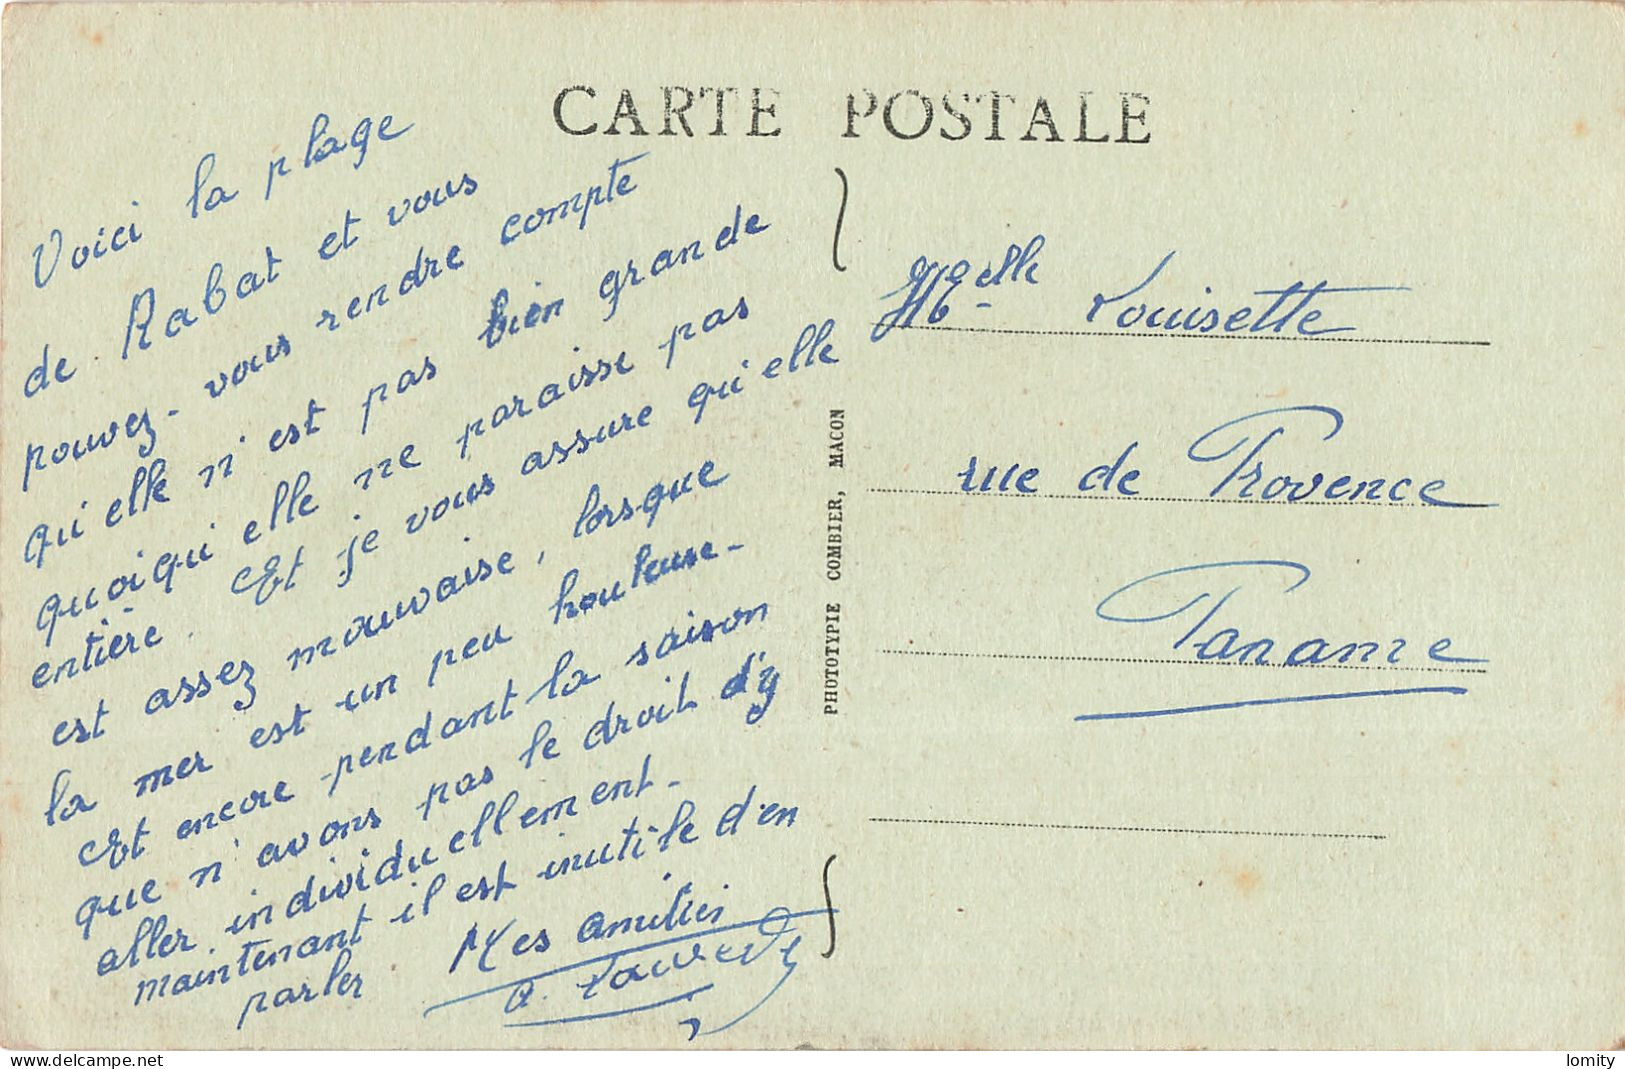 CARTE POSTALE
Voici la plage
de Rabat et vous
pouvez-vous rendre compte
qu'elle n'est pas bien grande
quoiqu'elle ne paraisse pas
entière. Et je vous assure qu'elle
est assez mauvaise, lorsque
la mer est un peu houleuse-
Et encore pendant la saison
que n'avons pas le droit d'y
aller individuellement-
maintenant il est inutile d'en
parler
Mes amitiés
PHOTOTYPIE COMBIER, MACON
Melle Louisette
rue de Provence
Paname
delcampe.net
lomity